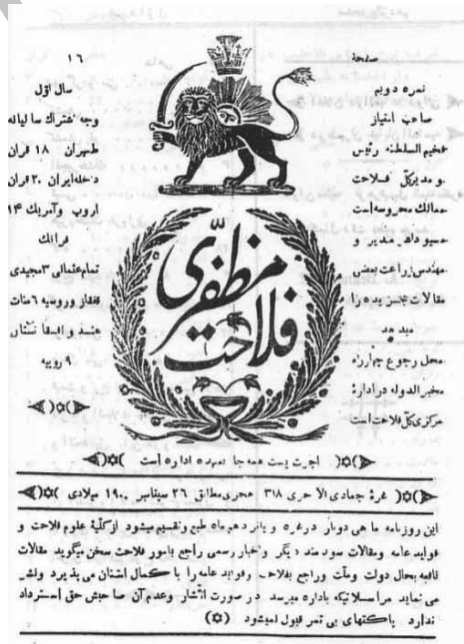 صفحهٔ
۱۶
نمره دویم
صاحب امتیاز
مفخم السلطنه رئیس
و مدیر کل فلاحت
ممالک محروسه است
مسیو داهر مدیر و
مهندس زراعت بعض
مقالات بجریده را
میدهد
محل رجوع
مخبر الدوله در ادارهٔ
مرکزی کل فلاحت است
سال اول
وجه اشتراک سالیانه
طهران ۱۸ قران
داخله ایران ۲۰ قران
اروپ و آمریک ۱۴
فرانک
تمام عثمانی ۳ مجیدی
قفقاز و روسیه ۶ منات
هند و
۹ روپیه
فلاحت مظفری
اجرت پست همه جا بعهده اداره است
غرهٔ جمادی الاخری ۳۱۸ هجری مطابق ۲۶ سپتامبر ۱۹۰۰ میلادی
این روزنامه ماهی دوبار در غره و پانزدهم ماه طبع و تقسیم میشود از کلیهٔ علوم فلاحت و
فواید عامه و مقالات سودمند دیگر و اخبار رسمی راجع بامور فلاحت سخن میگوید مقالات
نافعه بحال دولت و ملت و راجع بفلاحت و فواید عامه را با کمال امتنان می پذیرد و نشر
می نماید مراسلاتیکه باداره میرسد در صورت انتشار و عدم آن صاحبش حق استرداد
ندارد پاکتهای بی تمر قبول نمیشود